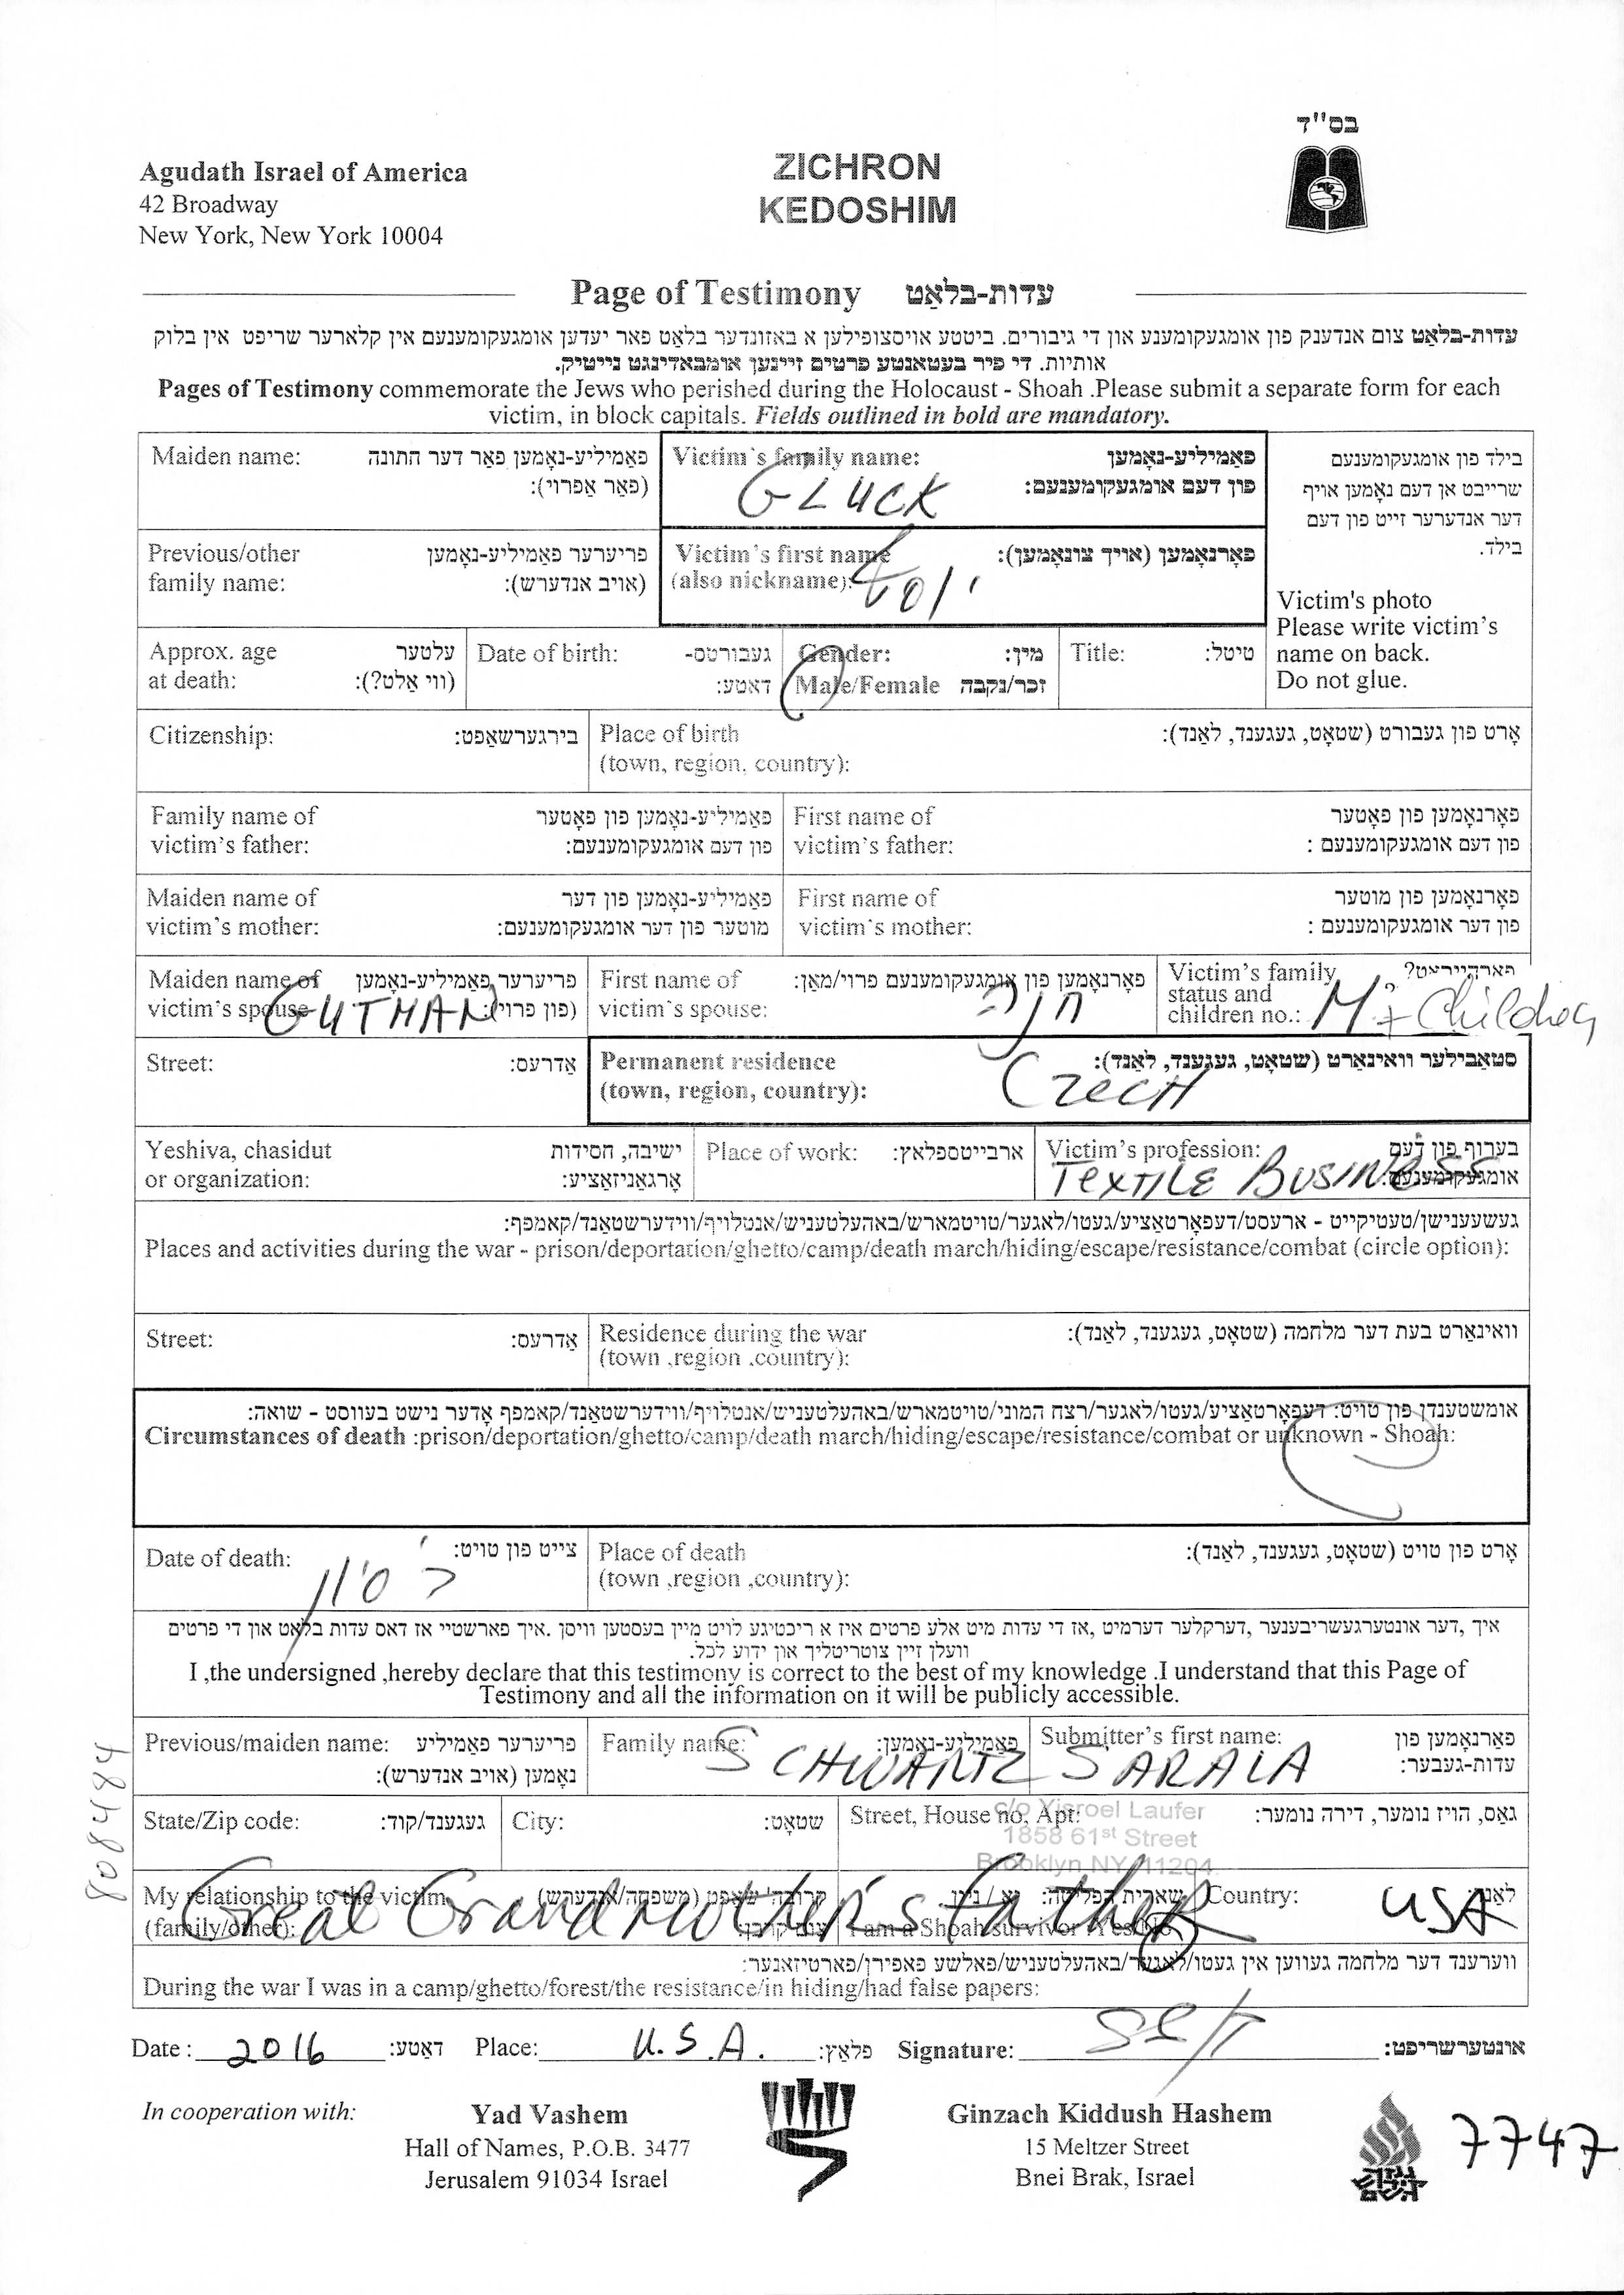 בס"ד
Agudath Israel of America
42 Broadway
New York, New York 10004
ZICHRON
KEDOSHIM
Page of Testimony עדות-בלאַט
עדות-בלאַט צום אנדענק פון אומגעקומענע און די גיבורים. ביטטע אויסצופילען א באזונדער בלאַט פאר יעדען אומגעקומענעם אין קלארער שריפט אין בלוק
אותיות. די פיר בעטאנטע פרטים זיינען אומבאדינגט נייטיק.
Pages of Testimony commemorate the Jews who perished during the Holocaust - Shoah .Please submit a separate form for each
victim, in block capitals. Fields outlined in bold are mandatory.
Maiden name: פאַמיליע-נאָמען פאר דער חתונה
(פאַר אַפרוי):
Victim's family name: פאַמיליע-נאָמען
פון דעם אומגעקומענעם:
GLUCK
Previous/other פריערער פאַמיליע-נאָמען
family name: (אויב אנדערש):
Victim's first name פאָרנאָמען (אויך צונאָמען):
(also nickname):
יוסף
בילד פון אומגעקומענעם
שרייבט אן דעם נאָמען אויף
דער אנדערער זייט פון דעם
בילד.
Victim's photo
Please write victim's
name on back.
Do not glue.
Approx. age עלטער
at death: (ווי אַלט?):
Date of birth: געבורטס-
דאטע:
Gender: מין:
Male/Female זכר/נקבה
Title: טיטל:
Citizenship: בירגערשאַפט:
Place of birth אָרט פון געבורט (שטאָט, געגענד, לאַנד):
(town, region, country):
Family name of פאַמיליע-נאָמען פון פאָטער
victim's father: פון דעם אומגעקומענעם:
First name of פאָרנאָמען פון פאָטער
victim's father: פון דעם אומגעקומענעם :
Maiden name of פאַמיליע-נאָמען פון דער
victim's mother: מוטער פון דער אומגעקומענעם:
First name of פאָרנאָמען פון מוטער
victim's mother: פון דער אומגעקומענעם :
Maiden name of פריערער פאַמיליע-נאָמען
victim's spouse (פון פרוי):
GUTMAN
First name of פאָרנאָמען פון אומגעקומענעם פרוי/מאַן:
victim's spouse:
חנה
Victim's family פארהייראט?
status and
children no.:
M + Children
Street: אַדרעס:
Permanent residence סטאַבילער וואוינאָרט (שטאָט, געגענד, לאַנד):
(town, region, country):
CZECH
Yeshiva, chasidut ישיבה, חסידות
or organization: אָרגאַניזאַציע:
Place of work: ארבייטספלאץ:
Victim's profession: בערוף פון דעם
אומגעקומענעם:
TEXTILE BUSINESS
געשעענישן/טעטיקייט - ארעסט/דעפאָרטאַציע/געטו/לאגער/טויטמארש/באהעלטעניש/אנטלויף/ווידערשטאַנד/קאמפף:
Places and activities during the war - prison/deportation/ghetto/camp/death march/hiding/escape/resistance/combat (circle option):
Street: אַדרעס:
Residence during the war וואוינאָרט בעת דער מלחמה (שטאָט, געגענד, לאַנד):
(town ,region ,country):
אומשטענדן פון טויט: דעפאָרטאַציע/געטו/לאגער/רצח המוני/טויטמארש/באהעלטעניש/אנטלויף/ווידערשטאַנד/קאמפף אָדער נישט בעוווסט - שואה:
Circumstances of death :prison/deportation/ghetto/camp/death march/hiding/escape/resistance/combat or unknown - Shoah:
Date of death: צייט פון טויט:
כ' סיון
Place of death אָרט פון טויט (שטאָט, געגענד, לאַנד):
(town ,region ,country):
איך ,דער אונטערגעשריבענער ,דערקלער דערמיט ,אז די עדות מיט אלע פרטים איז א ריכטיגע לויט מיין בעסטען וויסן .איך פארשטיי אז דאס עדות בלאט און די פרטים
וועלן זיין צוטריטליך און ידוע לכל.
I ,the undersigned ,hereby declare that this testimony is correct to the best of my knowledge .I understand that this Page of
Testimony and all the information on it will be publicly accessible.
Previous/maiden name: פריערער פאַמיליע
נאָמען (אויב אנדערש):
Family name: פאַמיליע-נאָמען:
SCHWARTZ
Submitter's first name: פאָרנאָמען פון
עדות-געבער:
SARALA
State/Zip code: געגענד/קוד:
City: שטאָט:
Street, House no, Apt: גאַס, הויז נומער, דירה נומער:
c/o Yisroel Laufer
1858 61st Street
Brooklyn NY 11204
My relationship to the victim קרובה'שאַפט (משפּחה/אנדערש)
(family/other):
Great Grandmother's Father
שארית הפליטה:
I am a Shoah survivor :Yes/No
Country: לאַנד:
USA
ווערענד דער מלחמה געווען אין געטו/לאגער/באהעלטעניש/פאלשע פאפירן/פארטיזאנער:
During the war I was in a camp/ghetto/forest/the resistance/in hiding/had false papers:
Date : 2016 דאַטע: Place: U.S.A. פלאַץ: Signature: אונטערשריפט:
In cooperation with:
Yad Vashem
Hall of Names, P.O.B. 3477
Jerusalem 91034 Israel
Ginzach Kiddush Hashem
15 Meltzer Street
Bnei Brak, Israel
7747
808484